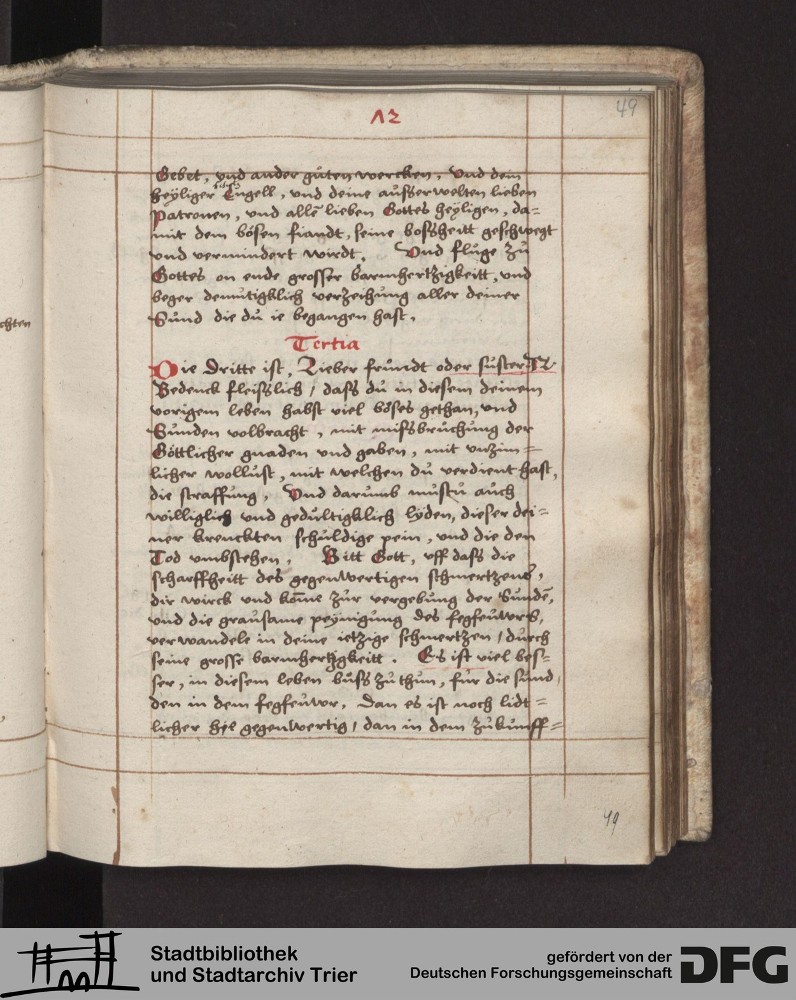 12
49
Gebet, und ander guten wercken, Und dem
heyliger Engell, und deine ausserwelten lieben
Patronen, und allē lieben Gottes heyligen, da=
mit dem bösen fiandt, seine bossheitt geschwegt
und vermindert wirdt. Und fluge zu
Gottes on ende grosser barmhertzigkeitt, und
beger demutigklich verzeihung aller deiner
Sund die du ie begangen hast.
Tertia
Die Dritte ist, Lieber frundt oder suster N.
Bedenck fleisslich / dass du in diesem deinem
vorigem leben habst viel böses gethan, und
Sunden volbracht, mit missbruchung der
Göttlicher gnaden und gaben, mit unzim=
licher wollust, mit welchen du verdient hast,
die straffung, Und darumb mustu auch
williglich und gedultigklich lyden, dieser dei=
ner krenckten schuldige pein, und die den
Tod umbstehen. Bitt Gott, uff dass die
scharffheitt des gegenwertigen schmertzens,
dir wirck und kōme zur vergebung der Sundē,
und die grausame peynigung des fegfeuwrs,
verwandele in deine ietzige schmertzen / durch
seine grosse barmhertzigkeitt. Es ist viel bes=
ser, in diesem leben buss zu thun, fur die sund,
den in dem fegfeuwr, Dan es ist noch lidt=
licher hie gegenwertig / dan in dem zukunff=
49
chten
Stadtbibliothek
und Stadtarchiv Trier
gefördert von der
Deutschen Forschungsgemeinschaft
DFG